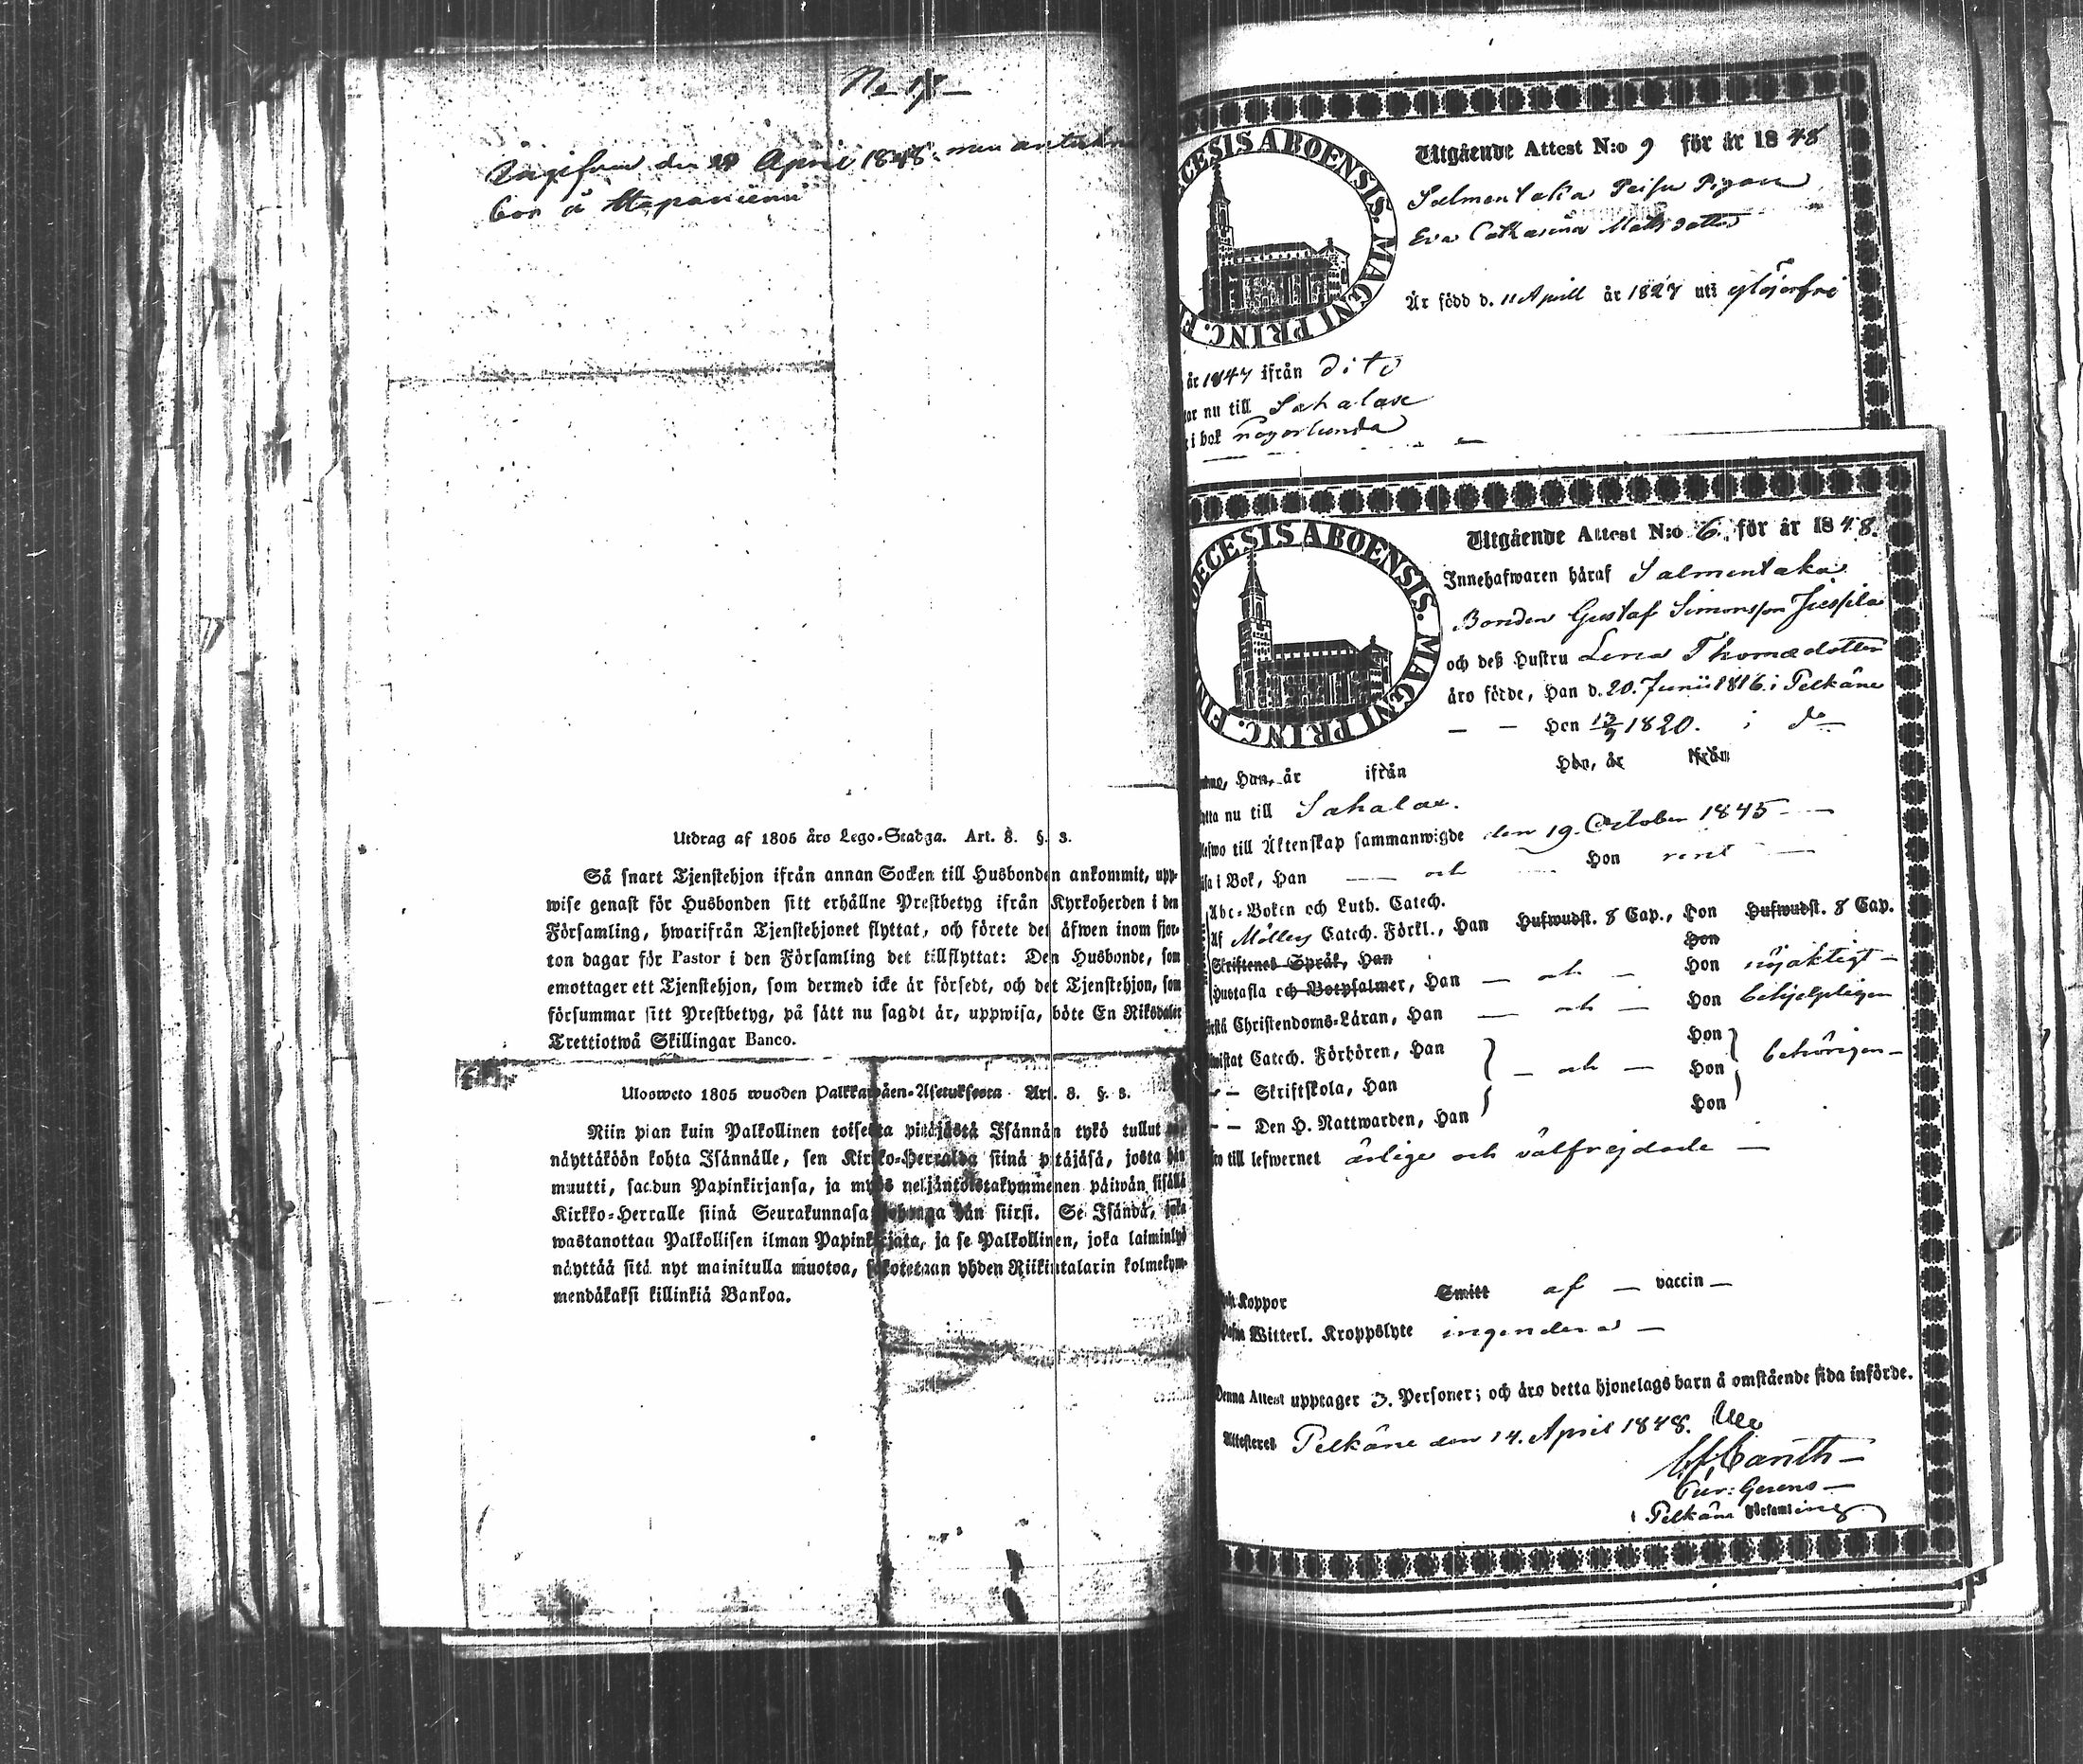 April 1848
Utdrag af 1805 års Lego-Stadga. Art. 8. §. 3.
Så snart Tjenstehjon ifrån annan Socken till Husbonden ankommit, upp-
wise genast för Husbonden sitt erhållne Prestbetyg ifrån Kyrkoherden i den
Församling, hwarifrån Tjenstehjonet flyttat, och förete det äfwen inom fjor-
ton dagar för Pastor i den Församling det tillflyttat: Den Husbonde, som
emottager ett Tjenstehjon, som dermed icke är försedt, och det Tjenstehjon, som
försummar sitt Prestbetyg, på sätt nu sagdt är, uppwisa, böte En Riksdaler
Trettiotwå Skillingar Banco.
Ulosweto 1805 wuoden Palkkawäen-Asetuksesta Art. 8. §. 3.
Niin pian kuin Palkollinen toisesta pitäjästä Isännän tykö tullut
näyttäköön kohta Isännälle, sen Kirkko-Herralda siinä pitäjäsä, josta hän
muutti, saadun Papinkirjansa, ja myös neljäntoistakymmenen päiwän sisällä
Kirkko-Herralle siinä Seurakunnasa hän siirsi. Se Isändä, joka
wastanottaa Palkollisen ilman Papinkirjata, ja se Palkollinen, joka laiminlyö
näyttää sitä nyt mainitulla muotoa, sakotetaan yhden Riikintalarin kolmekym-
mendäkaksi killinkiä Bankoa.
ECESIS ABOENSIS. MAGNI PRINC.
Utgående Attest N:o 9 för år 1848
Salmentaka Pigan
Eva Catharina Matsdotter
Är född d. 11 Aprill år 1827 uti
år 1847 ifrån dito
nu till Sahalax
i bok någorlunda
ECESIS ABOENSIS. MAGNI PRINC.
Utgående Attest N:o 6. för år 1848.
Innehafwaren häraf Salmentaka
Bonden Gustaf Simonsson
och deß Hustru Lena Thomædotter
äro födde, Han d. 20. Junii 1816. i Pelkäne
— — Hon 1820. i do
Han, år ifrån Hon, år ifrån
nu till Sahalax.
till Äktenskap sammanwigde den 19. October 1845 —
i Bok, Han — och — Hon rent —
Abc-Boken och Luth. Catech.
Af Möllers Catech. Förkl., Han Hufwudst. 8 Cap., Hon Hufwudst. 8 Cap.
Skriftenes Språk, Han Hon
Hustafla och Botpsalmer, Han — och — Hon nöjaktigt —
Christendoms-Läran, Han — och — Hon behjelpligen
Catech. Förhören, Han Hon
— Skriftskola, Han — och — Hon behörigen —
— Den H. Nattwarden, Han Hon
till lefwernet ärlige och välfrejdade —
Koppor Smitt af — vaccin —
Witterl. Kroppslyte ingendera —
Denna Attest upptager 3. Personer; och äro detta hjonelags barn å omstående sida införde.
Attesteres Pelkäne den 14. April 1848.
Pelkäne Församling